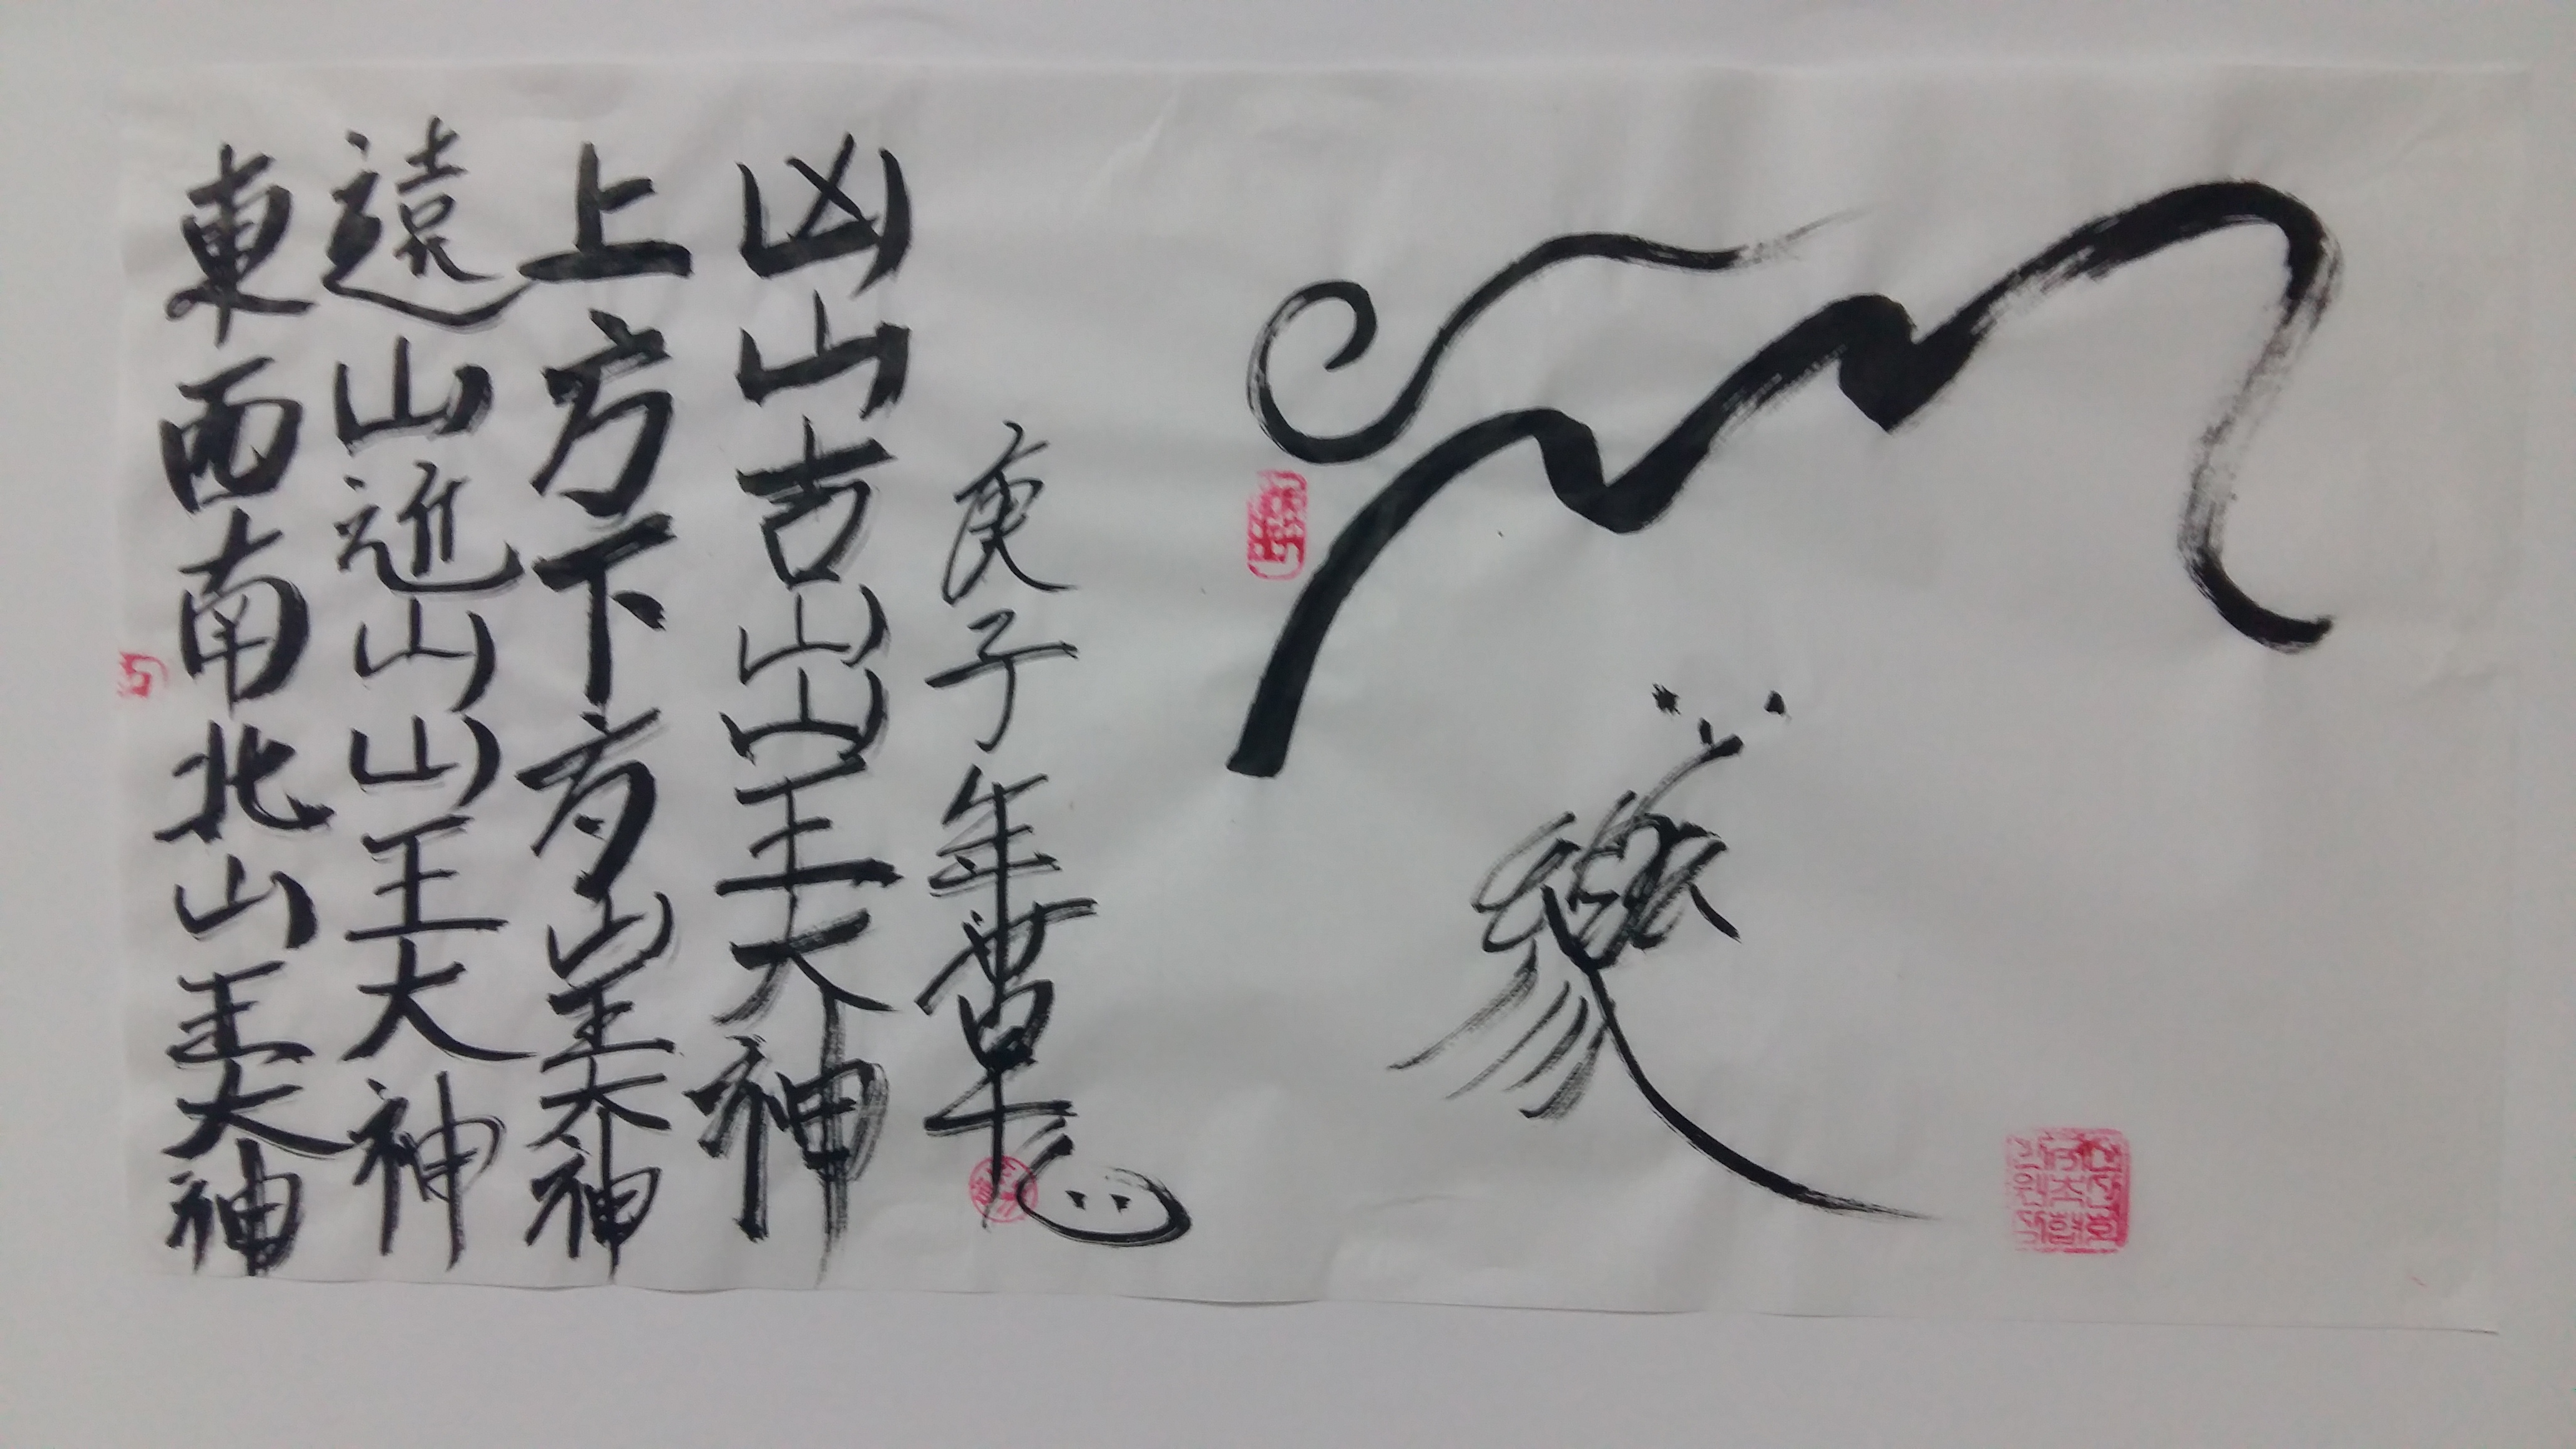 東西南北山王大神
遠山近山山王大神
上方下方山王大神
凶山吉山山王大神
庚子年